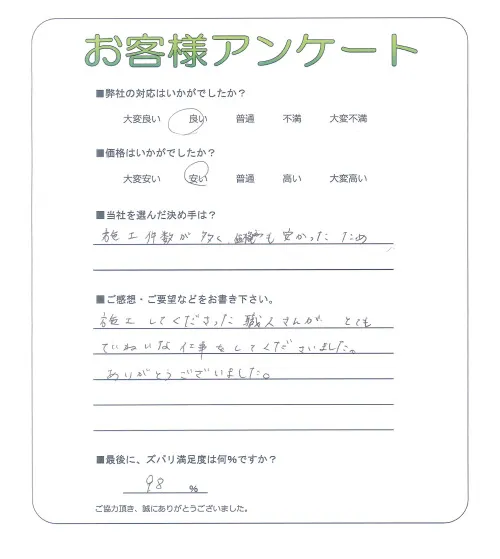 お客様アンケート
■弊社の対応はいかがでしたか？
大変良い 良い 普通 不満 大変不満
■価格はいかがでしたか？
大変安い 安い 普通 高い 大変高い
■当社を選んだ決め手は？
施工件数が多く、価格も安かったため
■ご感想・ご要望などをお書き下さい。
施工してくださった職人さんが、とても
ていねいな仕事をしてくださいました。
ありがとうございました。
■最後に、ズバリ満足度は何%ですか？
98 %
ご協力頂き、誠にありがとうございました。